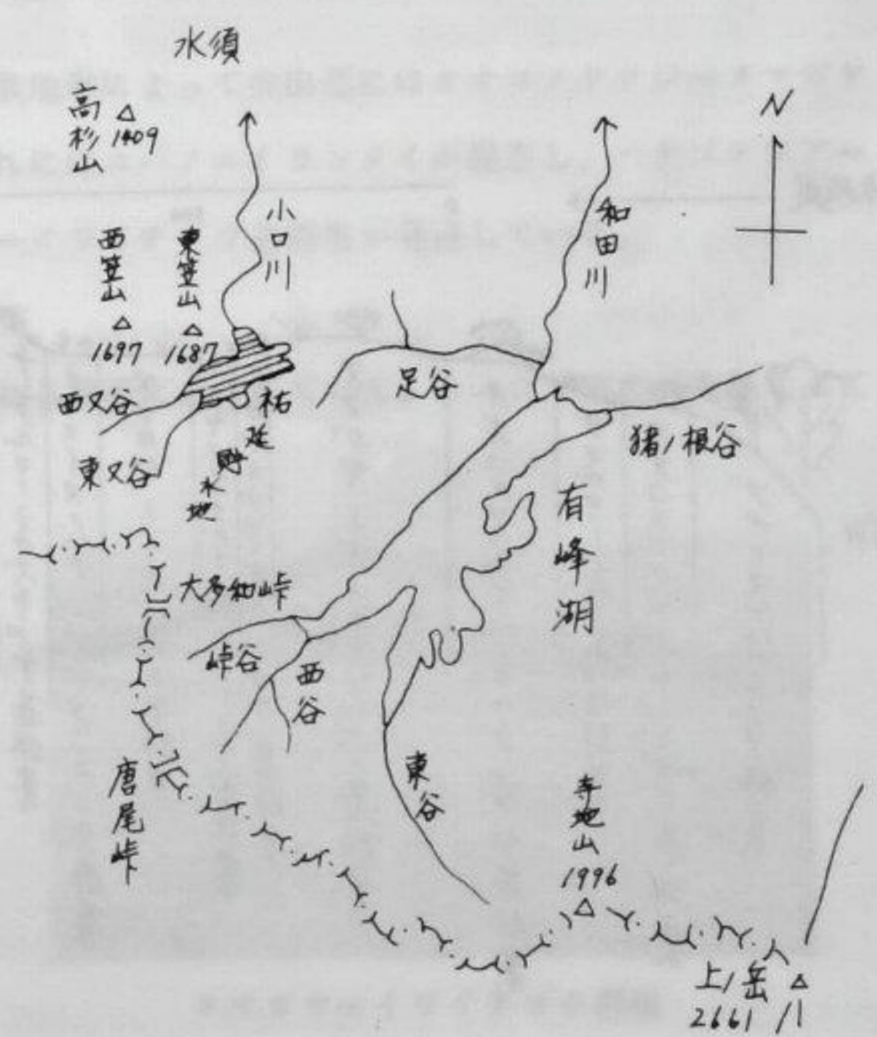 水須
高杉山
1409
N
小口川
和田川
西笠山
1697
東笠山
1687
足谷
西又谷
祐延貯水池
猪ノ根谷
東又谷
有峰湖
大多和峠
峠谷
西谷
唐尾峠
東谷
寺地山
1996
上ノ岳
2661